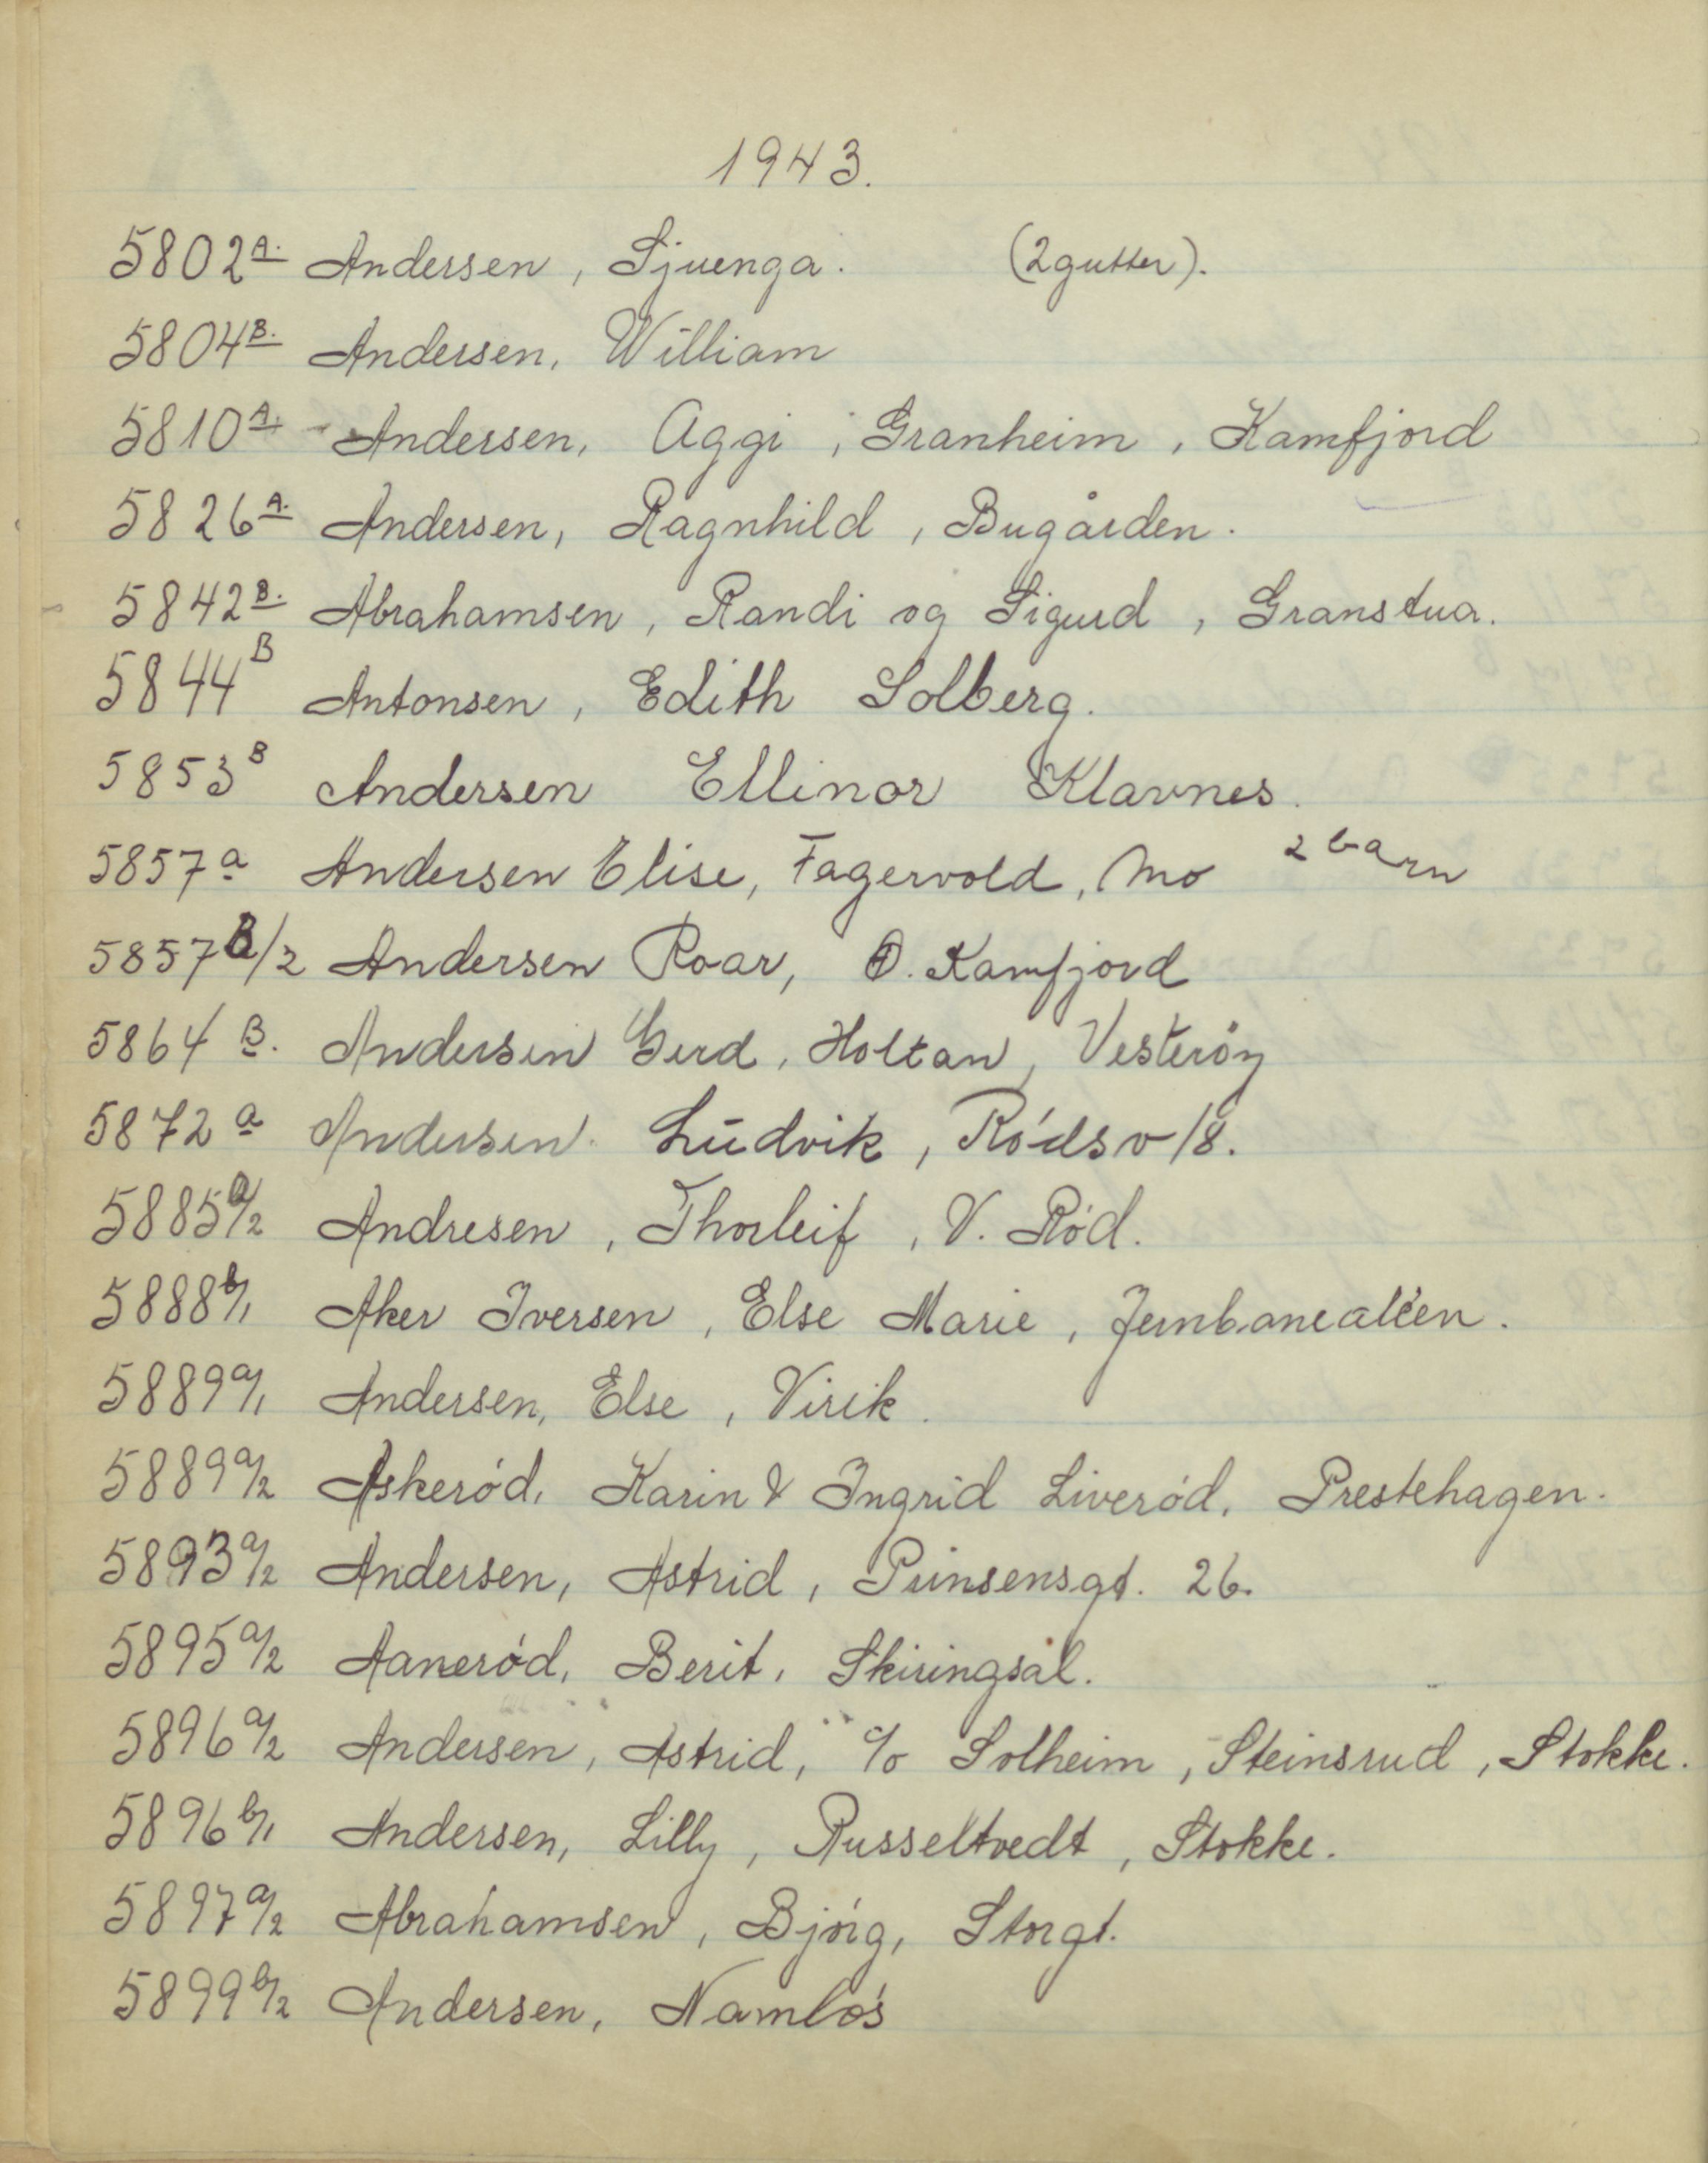 1943.
5802 A. Andersen, Sjuenga. (2 gutter).
5804 B. Andersen, William
5810 A. Andersen, Aggi, Granheim, Kamfjord
5826 A. Andersen, Ragnhild, Bugården.
5842 B. Abrahamsen, Randi og Sigurd, Granstua.
5844 B Antonsen, Edith Solberg.
5853 B Andersen Ellinor Klavnes.
5857 a Andersen Elise, Fagervold, Mo 2 barn
5857 B/2 Andersen Roar, Ø. Kamfjord
5864 B. Andersen Gerd, Holtan, Vesterøy
5872 a Andersen Ludvik, Rødsv 18.
5885 a/2 Andresen, Thorleif, V. Rød.
5888 b/1 Aker Iversen, Else Marie, Jernbanealléen.
5889 a/1 Andersen, Else, Virik.
5889 a/2 Askerød, Karin & Ingrid Liverød, Prestehagen.
5893 a/2 Andersen, Astrid, Prinsensgt. 26.
5895 a/2 Aanerød, Berit, Skiringsal.
5896 a/2 Andersen, Astrid, c/o Solheim, Steinsrud, Stokke.
5896 b/1 Andersen, Lilly, Russeltvedt, Stokke.
5897 a/2 Abrahamsen, Bjørg, Storgt.
5899 b/2 Andersen, Namløs